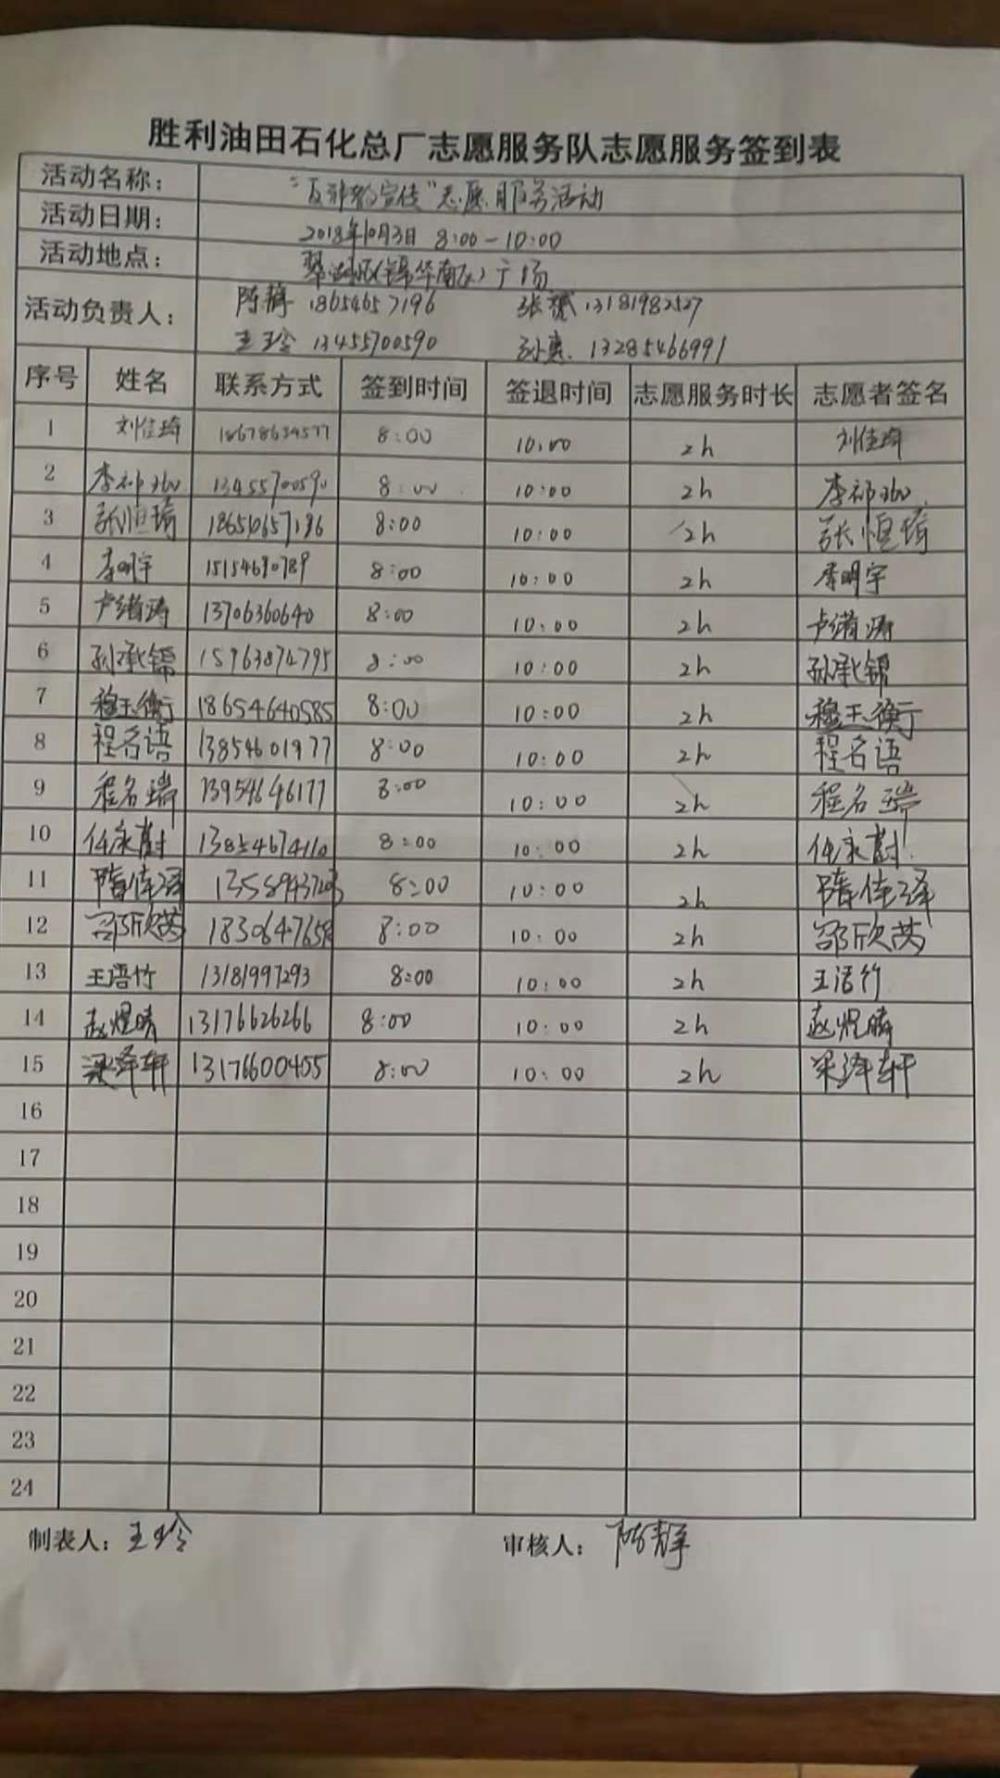 胜利油田石化总厂志愿服务队志愿服务签到表
活动名称： “反邪教宣传”志愿服务活动
活动日期： 2018年10月3日 8:00-10:00
活动地点： (锦华南区)广场
活动负责人： 陈静 18654657196 张 13181982527
王玲 13455700590 孙 13285466991
序号 姓名 联系方式 签到时间 签退时间 志愿服务时长 志愿者签名
1 刘佳琦 18678634577 8:00 10:00 2h 刘佳琦
2 李祁 13455700590 8:00 10:00 2h 李祁
3 张恒琦 18654657196 8:00 10:00 2h 张恒琦
4 李明宇 15154690789 8:00 10:00 2h 李明宇
5 卢潇涛 13706360640 8:00 10:00 2h 卢潇涛
6 孙承锦 15963874795 8:00 10:00 2h 孙承锦
7 穆玉衡 18654640585 8:00 10:00 2h 穆玉衡
8 程名语 13854601977 8:00 10:00 2h 程名语
9 程名瑞 13954646177 8:00 10:00 2h 程名瑞
10 任家尉 13854674110 8:00 10:00 2h 任家尉
11 隋佳泽 8:00 10:00 2h 隋佳泽
12 邵欣芮 8:00 10:00 2h 邵欣芮
13 王语竹 13181997293 8:00 10:00 2h 王语竹
14 赵煜晴 13176626266 8:00 10:00 2h 赵煜晴
15 梁泽轩 13176600455 8:00 10:00 2h 梁泽轩
16
17
18
19
20
21
22
23
24
制表人：王玲 审核人：陈静